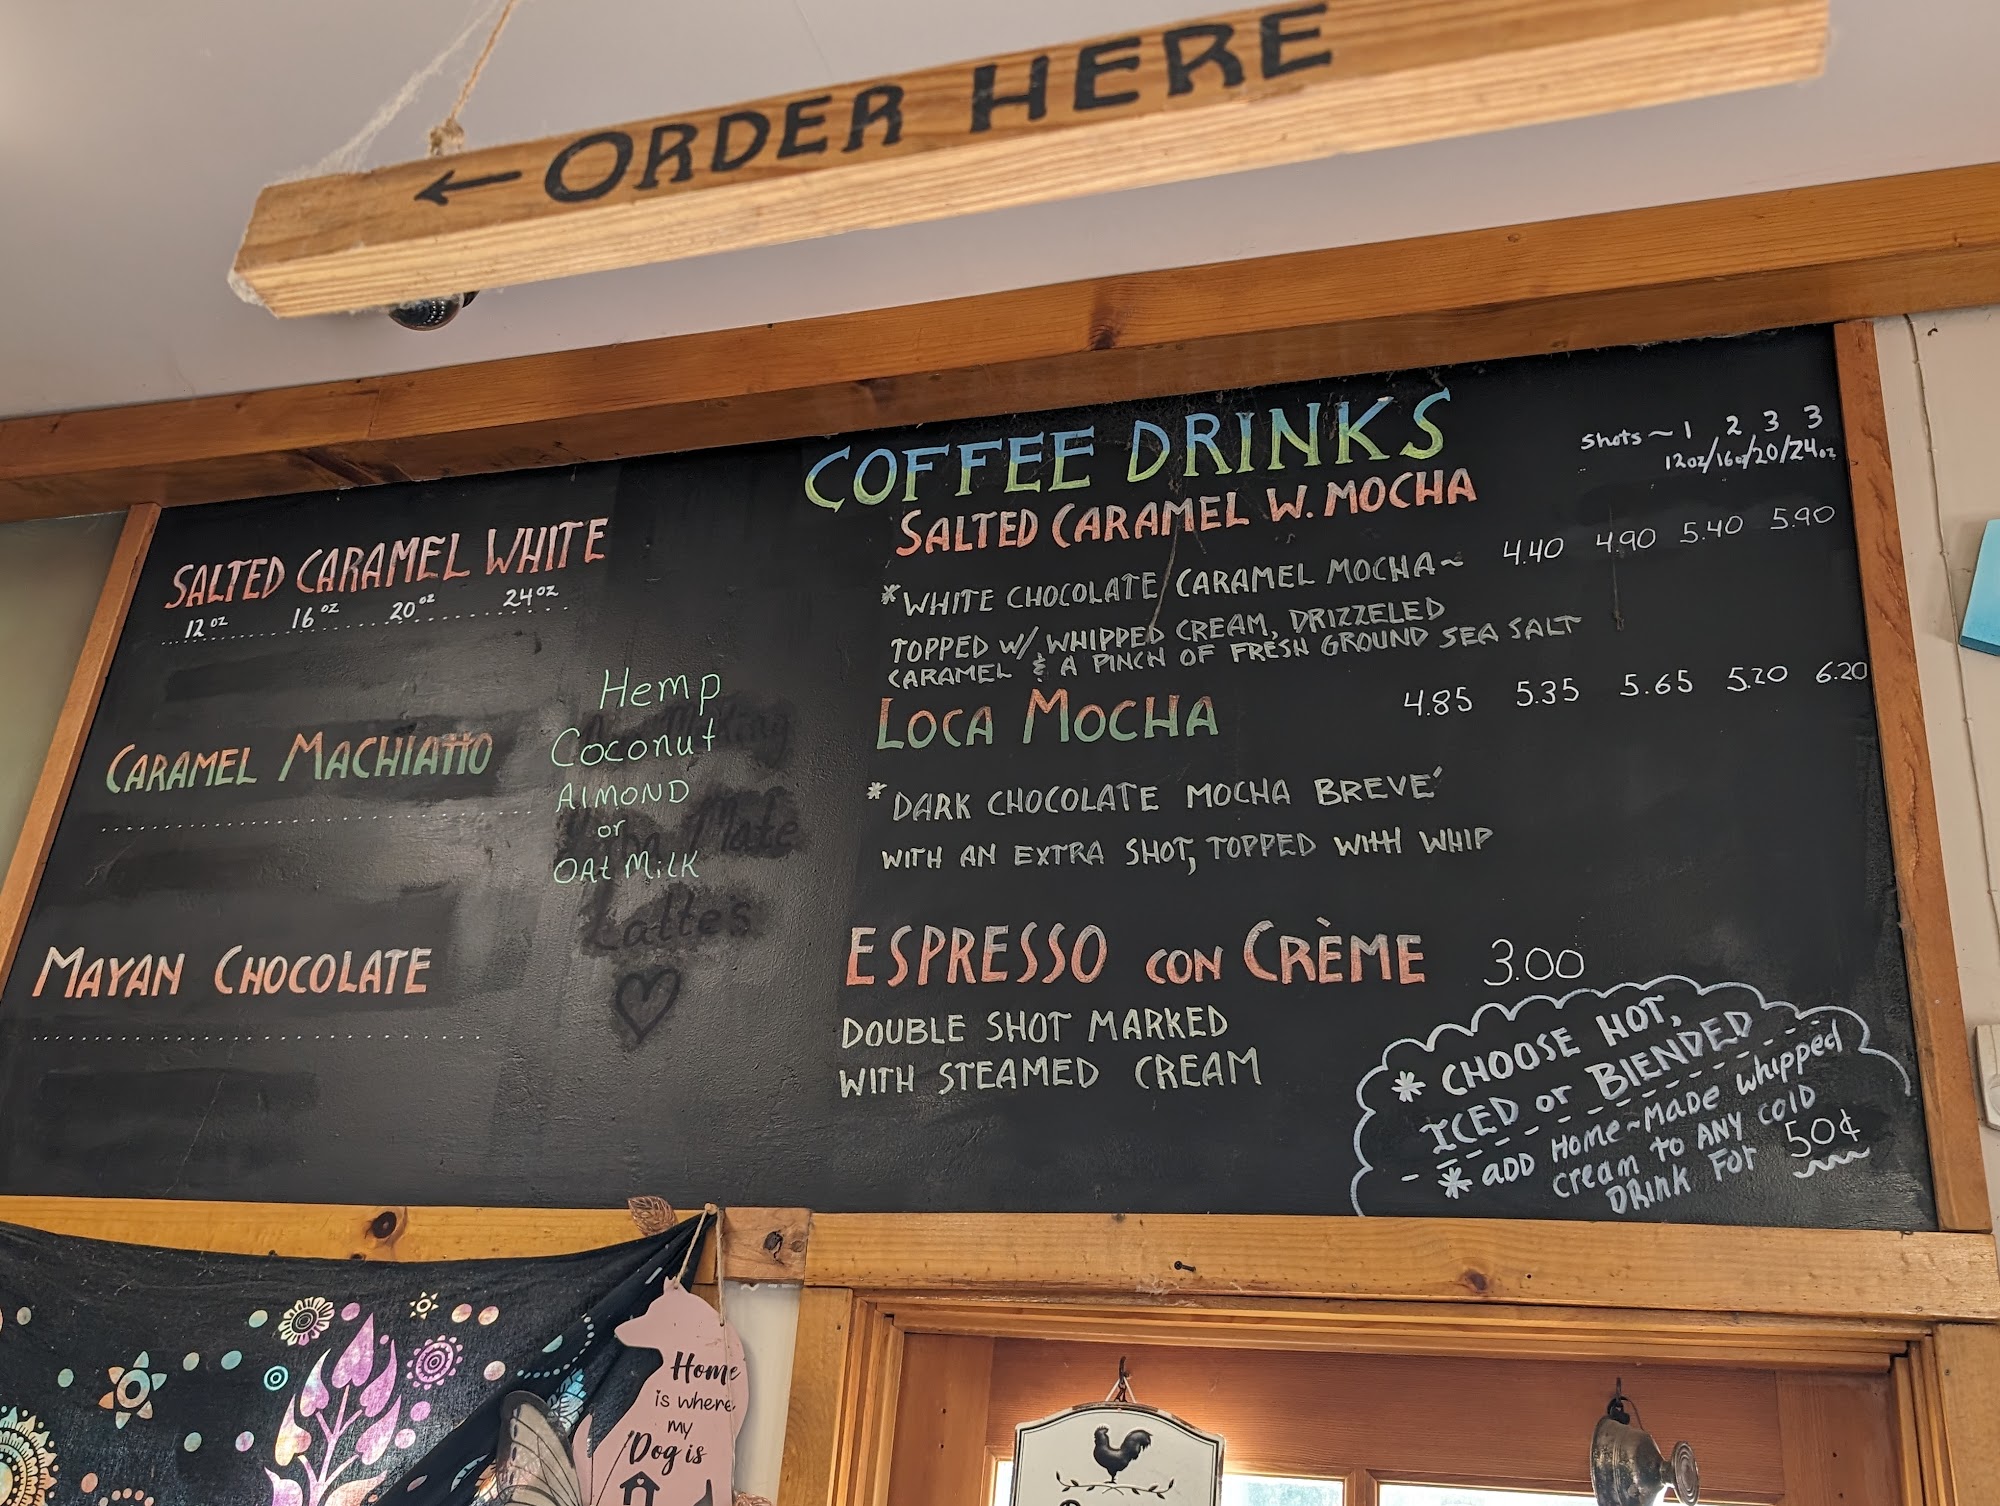 ← ORDER HERE
COFFEE DRINKS
Shots ~ 1 2 3 3
12oz/16oz/20/24oz
SALTED CARAMEL W. MOCHA
*WHITE CHOCOLATE CARAMEL MOCHA~ 4.40 4.90 5.40 5.90
TOPPED W/ WHIPPED CREAM, DRIZZELED
CARAMEL & A PINCH OF FRESH GROUND SEA SALT
LOCA MOCHA 4.85 5.35 5.65 5.20 6.20
*DARK CHOCOLATE MOCHA BREVE´
WITH AN EXTRA SHOT, TOPPED WITH WHIP
ESPRESSO CON CRÈME 3.00
DOUBLE SHOT MARKED
WITH STEAMED CREAM
* CHOOSE HOT,
ICED or BLENDED
* ADD HOME~MADE whipped
cream to ANY COLD
DRINK FOR 50¢
SALTED CARAMEL WHITE
12oz 16oz 20oz 24oz
CARAMEL MACHIATTO
MAYAN CHOCOLATE
Hemp
Coconut
ALMOND
or
OAt MiLK
Latte's
Home
is where
my
Dog is